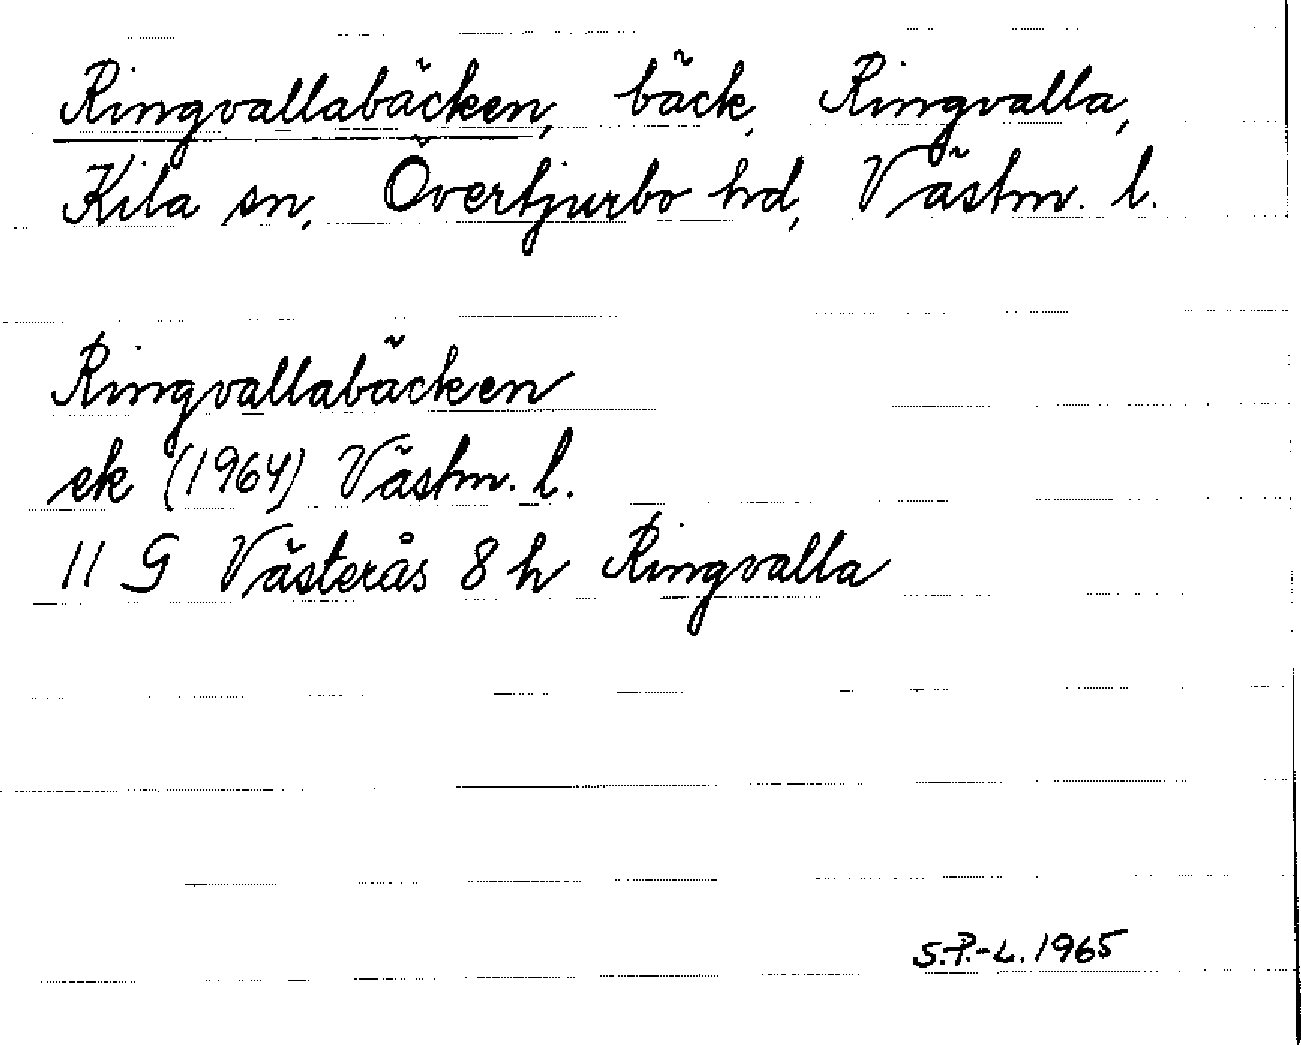 Ringvallabäcken, bäck, Ringvalla,
Kila sn, Övertjurbo hd, Västm. l.
Ringvallabäcken
ek (1964) Västm. l.
11 G Västerås 8 h Ringvalla
S.P.-L. 1965